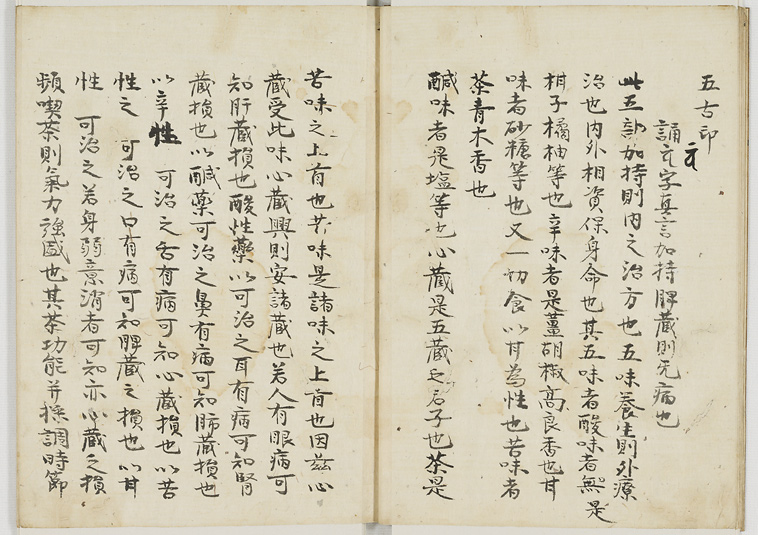 五古印
誦字真言加持脾藏則无病也
此五部加持則内之治方也五味養生則外療
治也内外相資保身命也其五味者酸味者是
柑子橘柚等也辛味者是薑胡椒高良香也甘
味者砂糖等也又一切食以甘為性也苦味者
茶青木香也
鹹味者是塩等也心藏是五藏之君子也茶是
苦味之上首也苦味是諸味之上首也因茲心
藏受此味心藏興則安諸藏也若人有眼病可
知肝藏損也酸性藥以可治之耳有病可知腎
藏損也以鹹藥可治之鼻有病可知肺藏損也
以辛性 可治之舌有病可知心藏損也以苦
性之 可治之口有病可知脾藏之損也以甘
性 可治之若身弱意消者可知亦心藏之損
頻喫茶則氣力強盛也其茶功能并採調時節